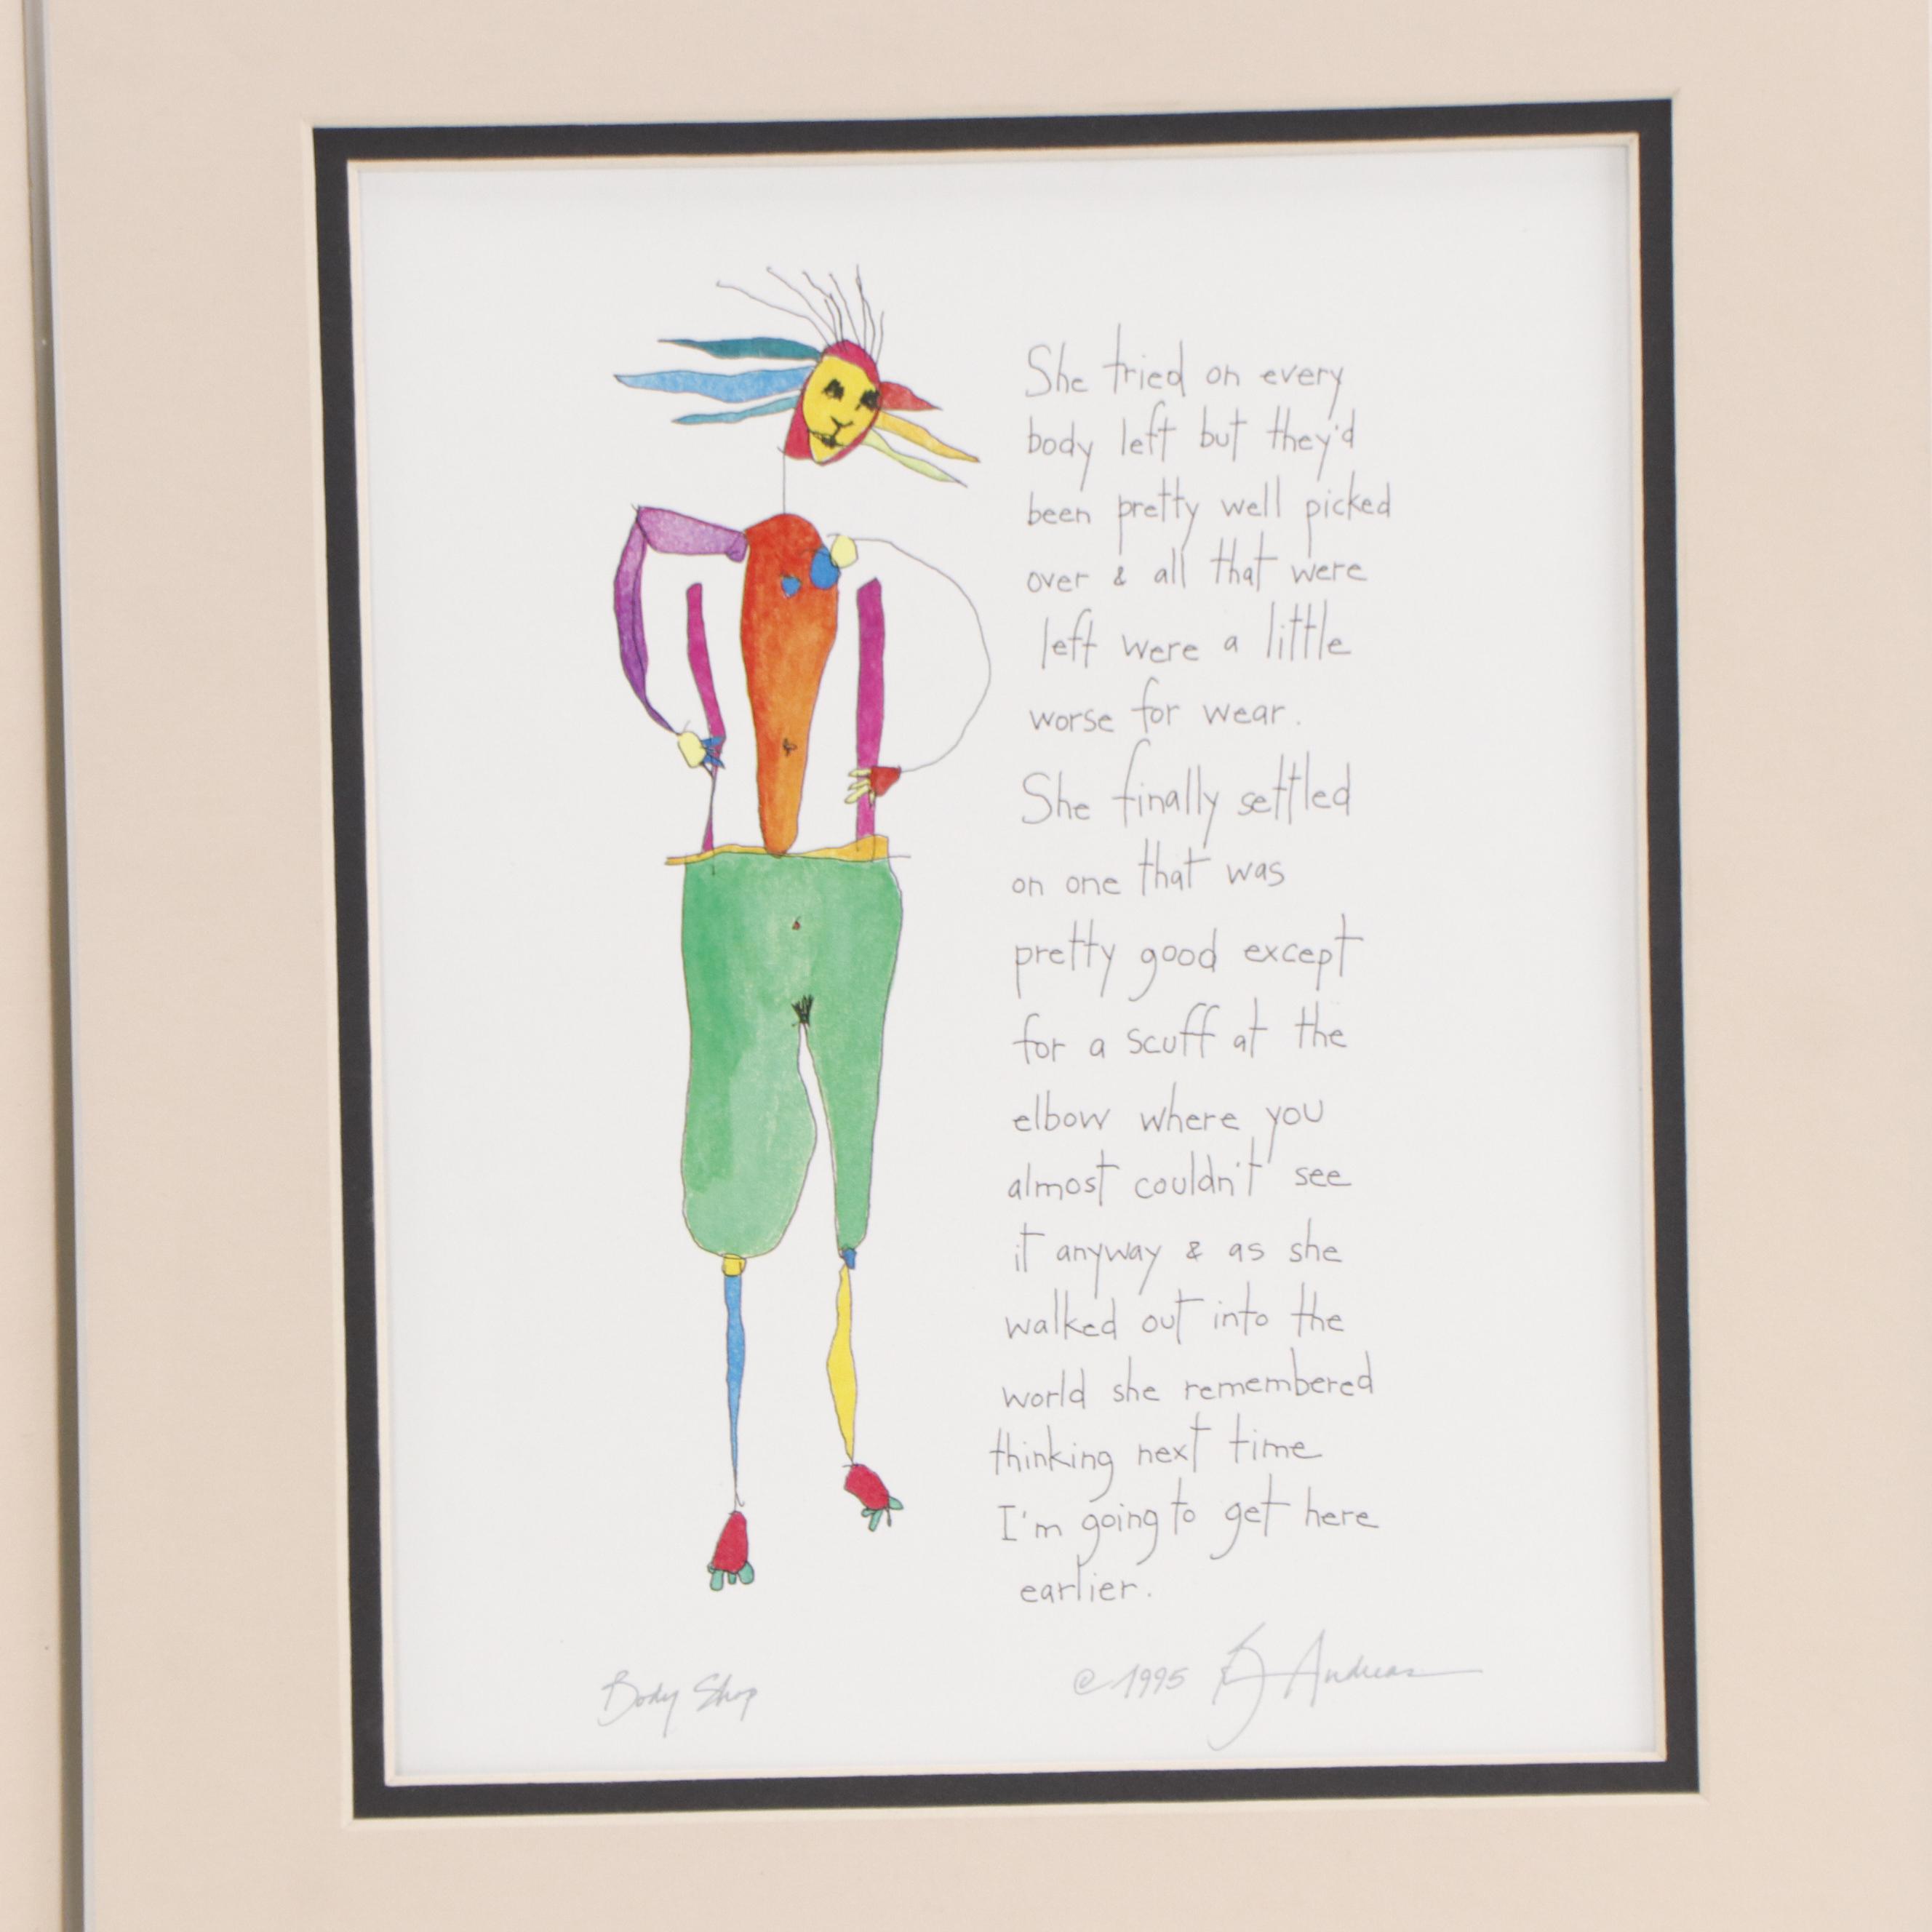 She tried on every
body left but they'd
been pretty well picked
over & all that were
left were a little
worse for wear.
She finally settled
on one that was
pretty good except
for a scuff at the
elbow where you
almost couldn't see
it anyway & as she
walked out into the
world she remembered
thinking next time
I'm going to get here
earlier.
Body Shop
© 1995 Andreas